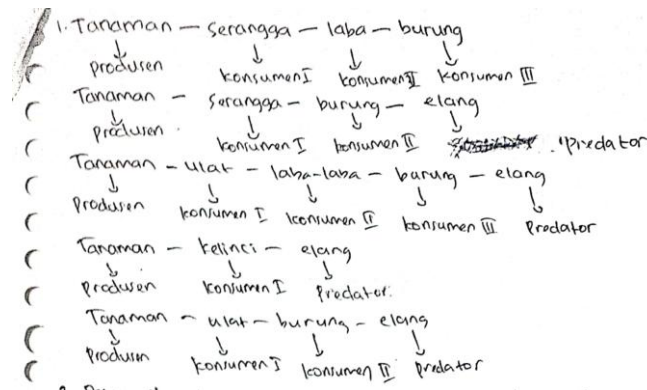 1. Tanaman – serangga – laba – burung
↓ ↓ ↓ ↓
produsen konsumen I konsumen II konsumen III
Tanaman – serangga – burung – elang
↓ ↓ ↓ ↓
produsen konsumen I konsumen II predator
Tanaman – ulat – laba-laba – burung – elang
↓ ↓ ↓ ↓ ↓
Produsen konsumen I konsumen II konsumen III Predator
Tanaman – kelinci – elang
↓ ↓ ↓
Produsen konsumen I Predator.
Tanaman – ulat – burung – elang
↓ ↓ ↓ ↓
Produsen konsumen I konsumen II predator